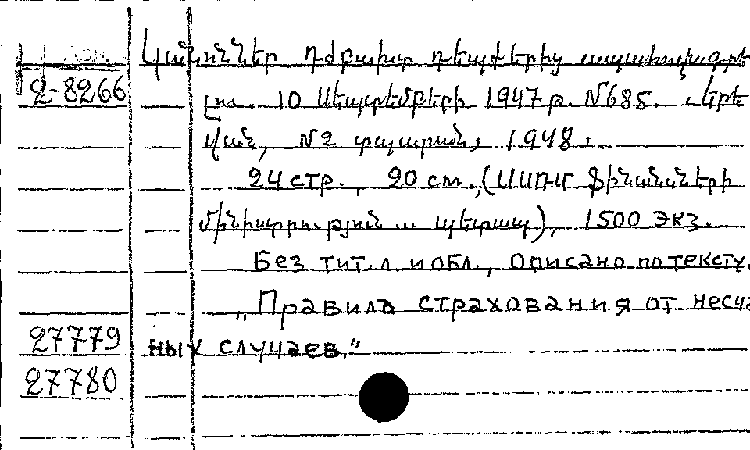 Կանոններ դժբախտ դեպքերից ապահովագրե
2-8266
լու. 10 սեպտեմբերի 1947 թ. N 685. Երե
վան, N2 տպարան, 1948.
24 стр., 20 см., (ՍՍՌՄ Ֆինանսների
մինիստրություն ... պետապ), 1500 экз.
Без тит. л и обл., описано по тексту.
„Правила страхования от несча
27779 ных случаев."
27780